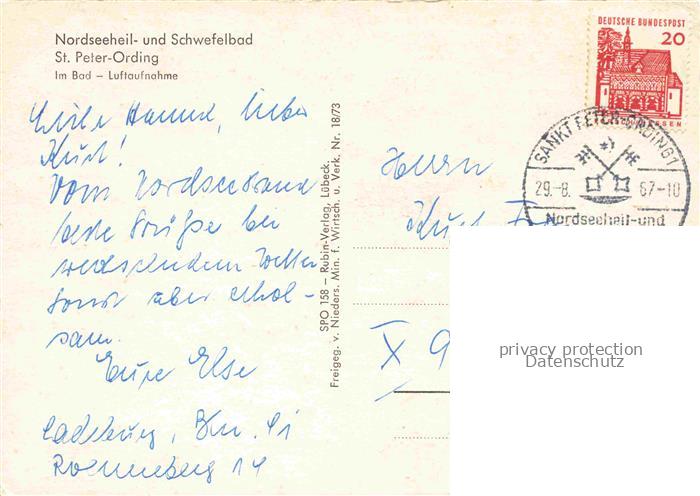 Nordseeheil- und Schwefelbad
St. Peter-Ording
Im Bad – Luftaufnahme
Hanna, liebe
Kurt!
Vom Nordseestrand
beste Grüße bei
wechselndem Wetter
sonst aber erhol-
sam.
Eure Else
14
SPO 158 – Rubin-Verlag, Lübeck,
Freigeg. v. Nieders. Min. f. Wirtsch. u. Verk. Nr. 18/73
DEUTSCHE BUNDESPOST
20
SANKT PETER-ORDING 1
29.-8. 67-10
Nordseeheil-und
Herrn
Kurt
X 9
privacy protection
Datenschutz